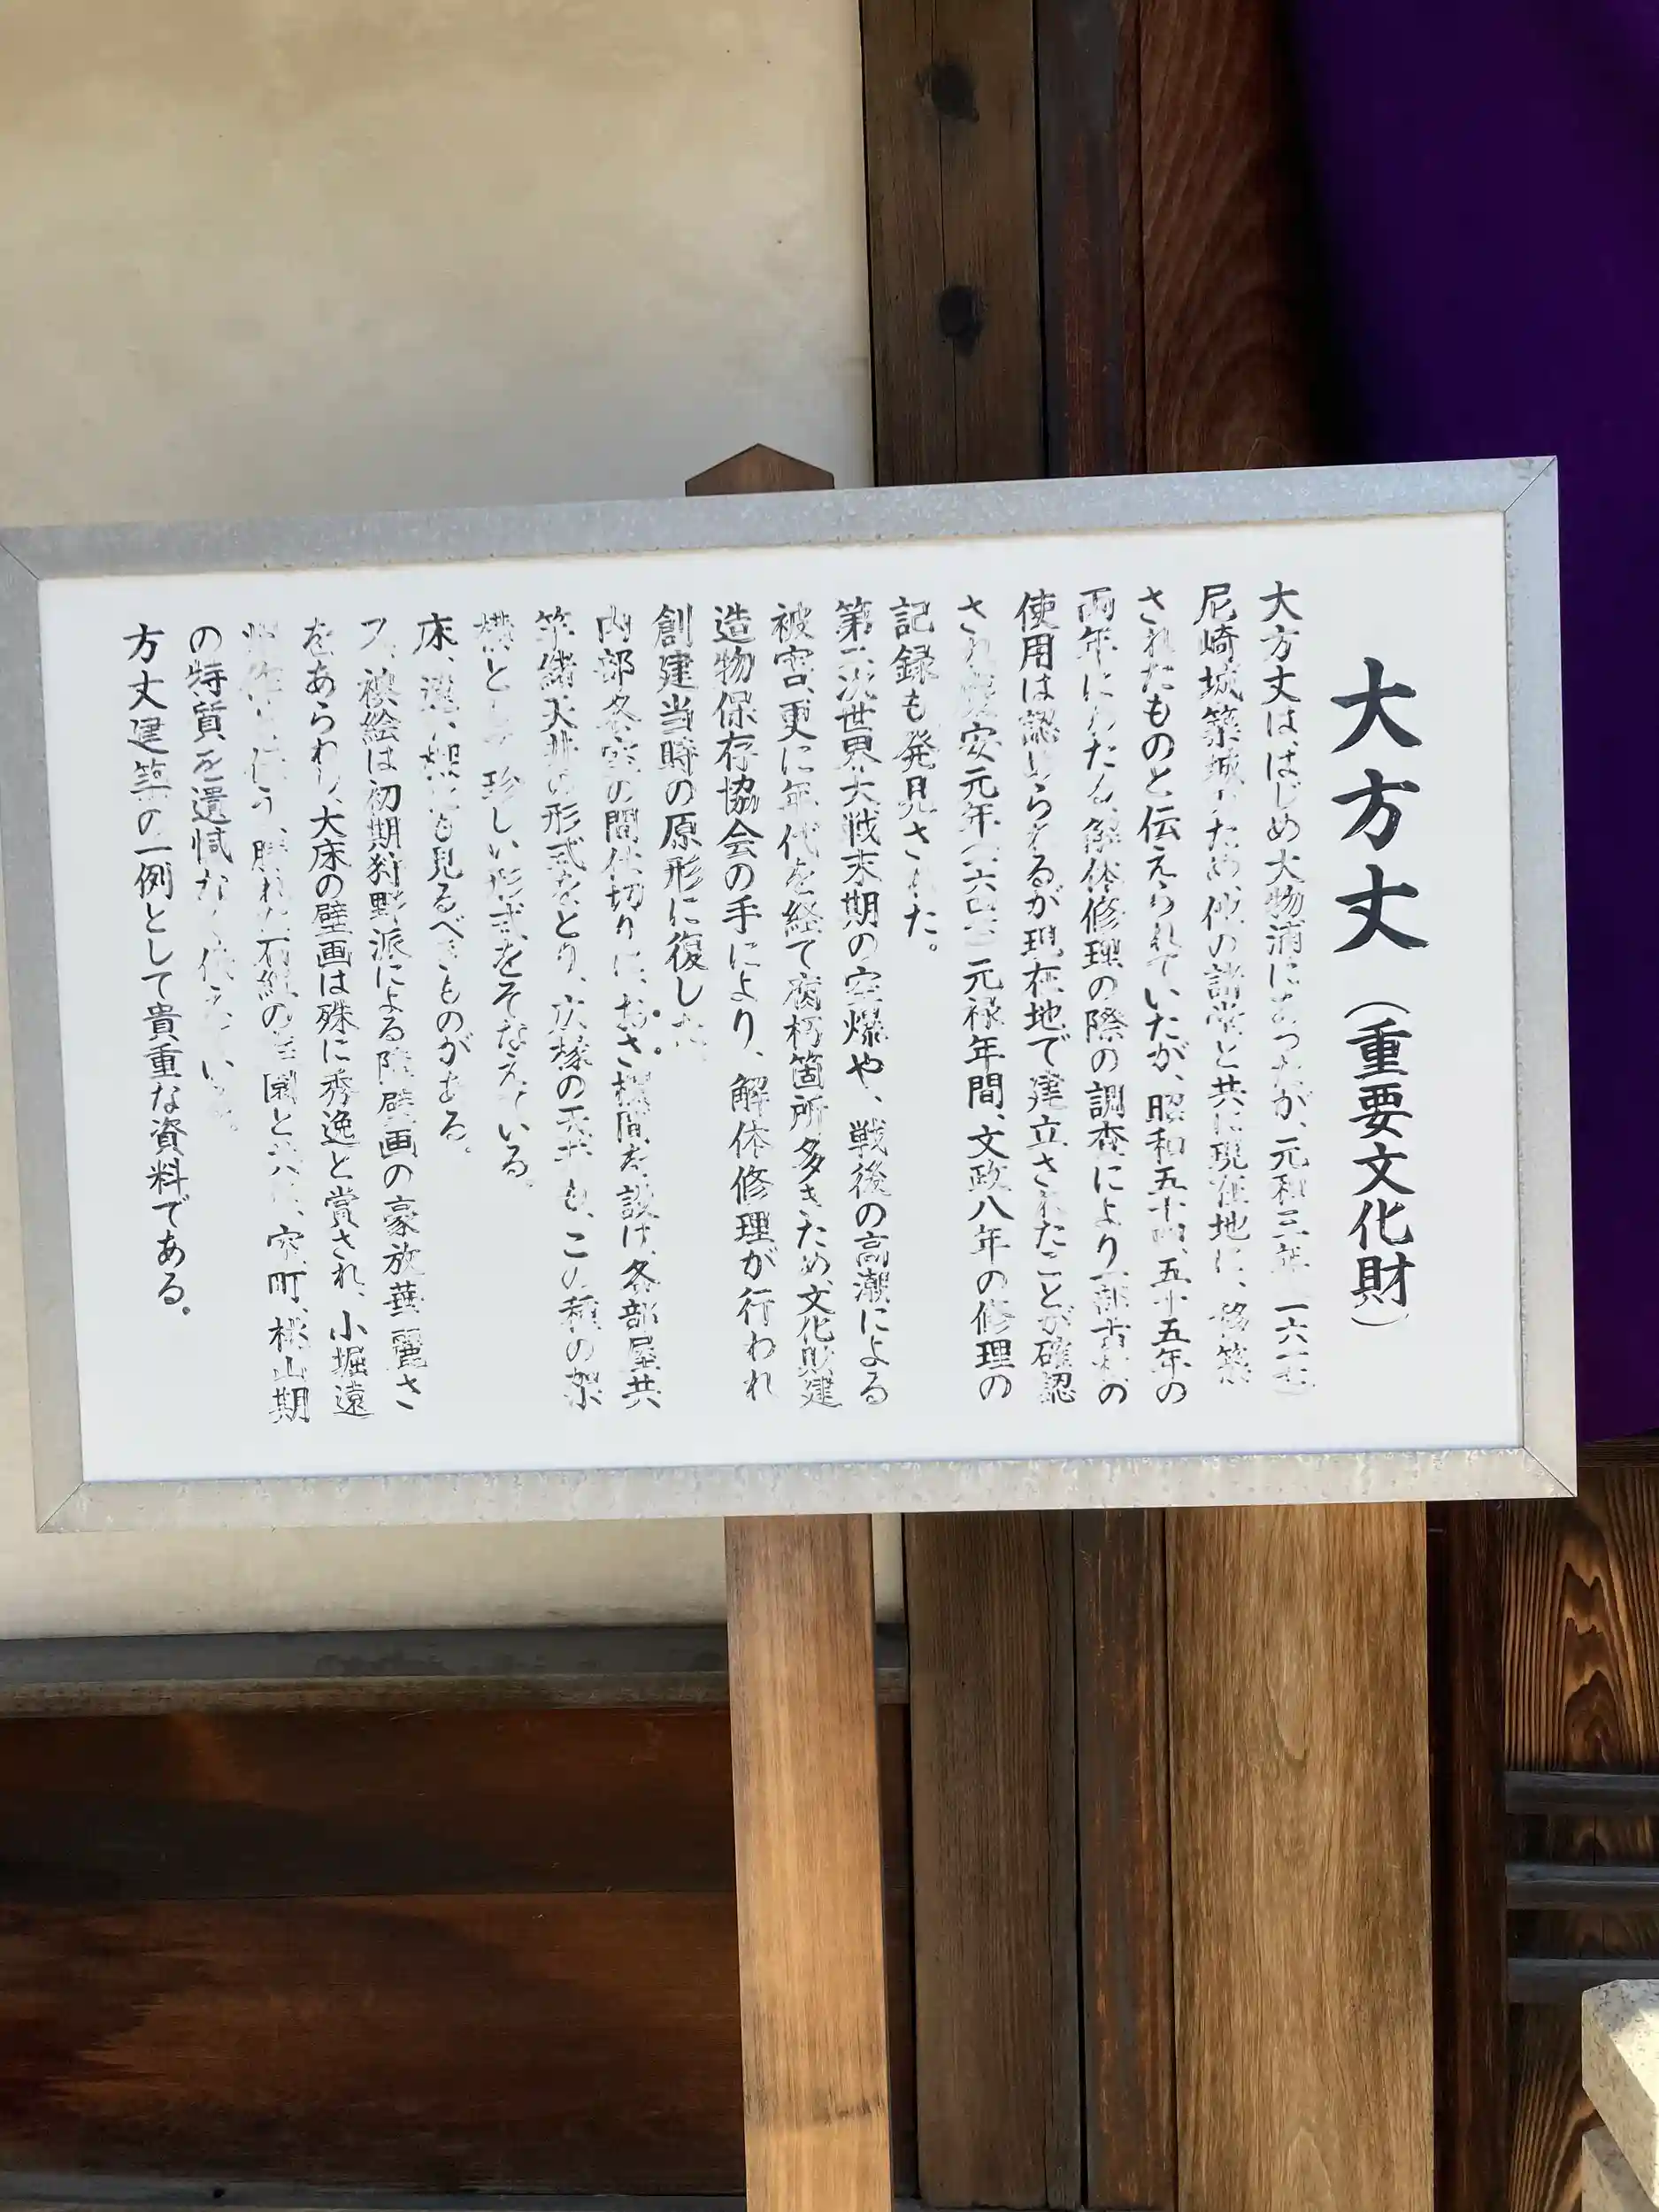 大方丈（重要文化財）
大方丈は、はじめ大物浦にあったが、元和三年（一六一七）
尼崎城築城のため他の諸堂と共に現在地に、移築
されたものと伝えられていたが、昭和五十四、五十五年の
両年にわたる解体修理の際の調査により一部古材の
使用は認められるが現在地で建立されたことが確認
され慶安元年 元禄年間、文政八年の修理の
記録も発見された。
第二次世界大戦末期の空爆や、戦後の高潮による
被害、更に年代を経て腐朽箇所多きため、文化財建
造物保存協会の手により、解体修理が行われ
創建当時の原形に復した。
内部各室の間仕切りに、おさ欄間を設け、各部屋共
竿縁天井の形式をとり、広縁の天井も、この種の架
構として珍しい形式をそなえている。
床、違い棚にも見るべきものがある。
又、襖絵は初期狩野派による障壁画の豪放華麗さ
をあらわし、大床の壁画は殊に秀逸と賞され、小堀遠
州作と伝う、勝れた石組の庭園と共に、室町、桃山期
の特質を遺憾なく伝えている。
方丈建築の一例として貴重な資料である。